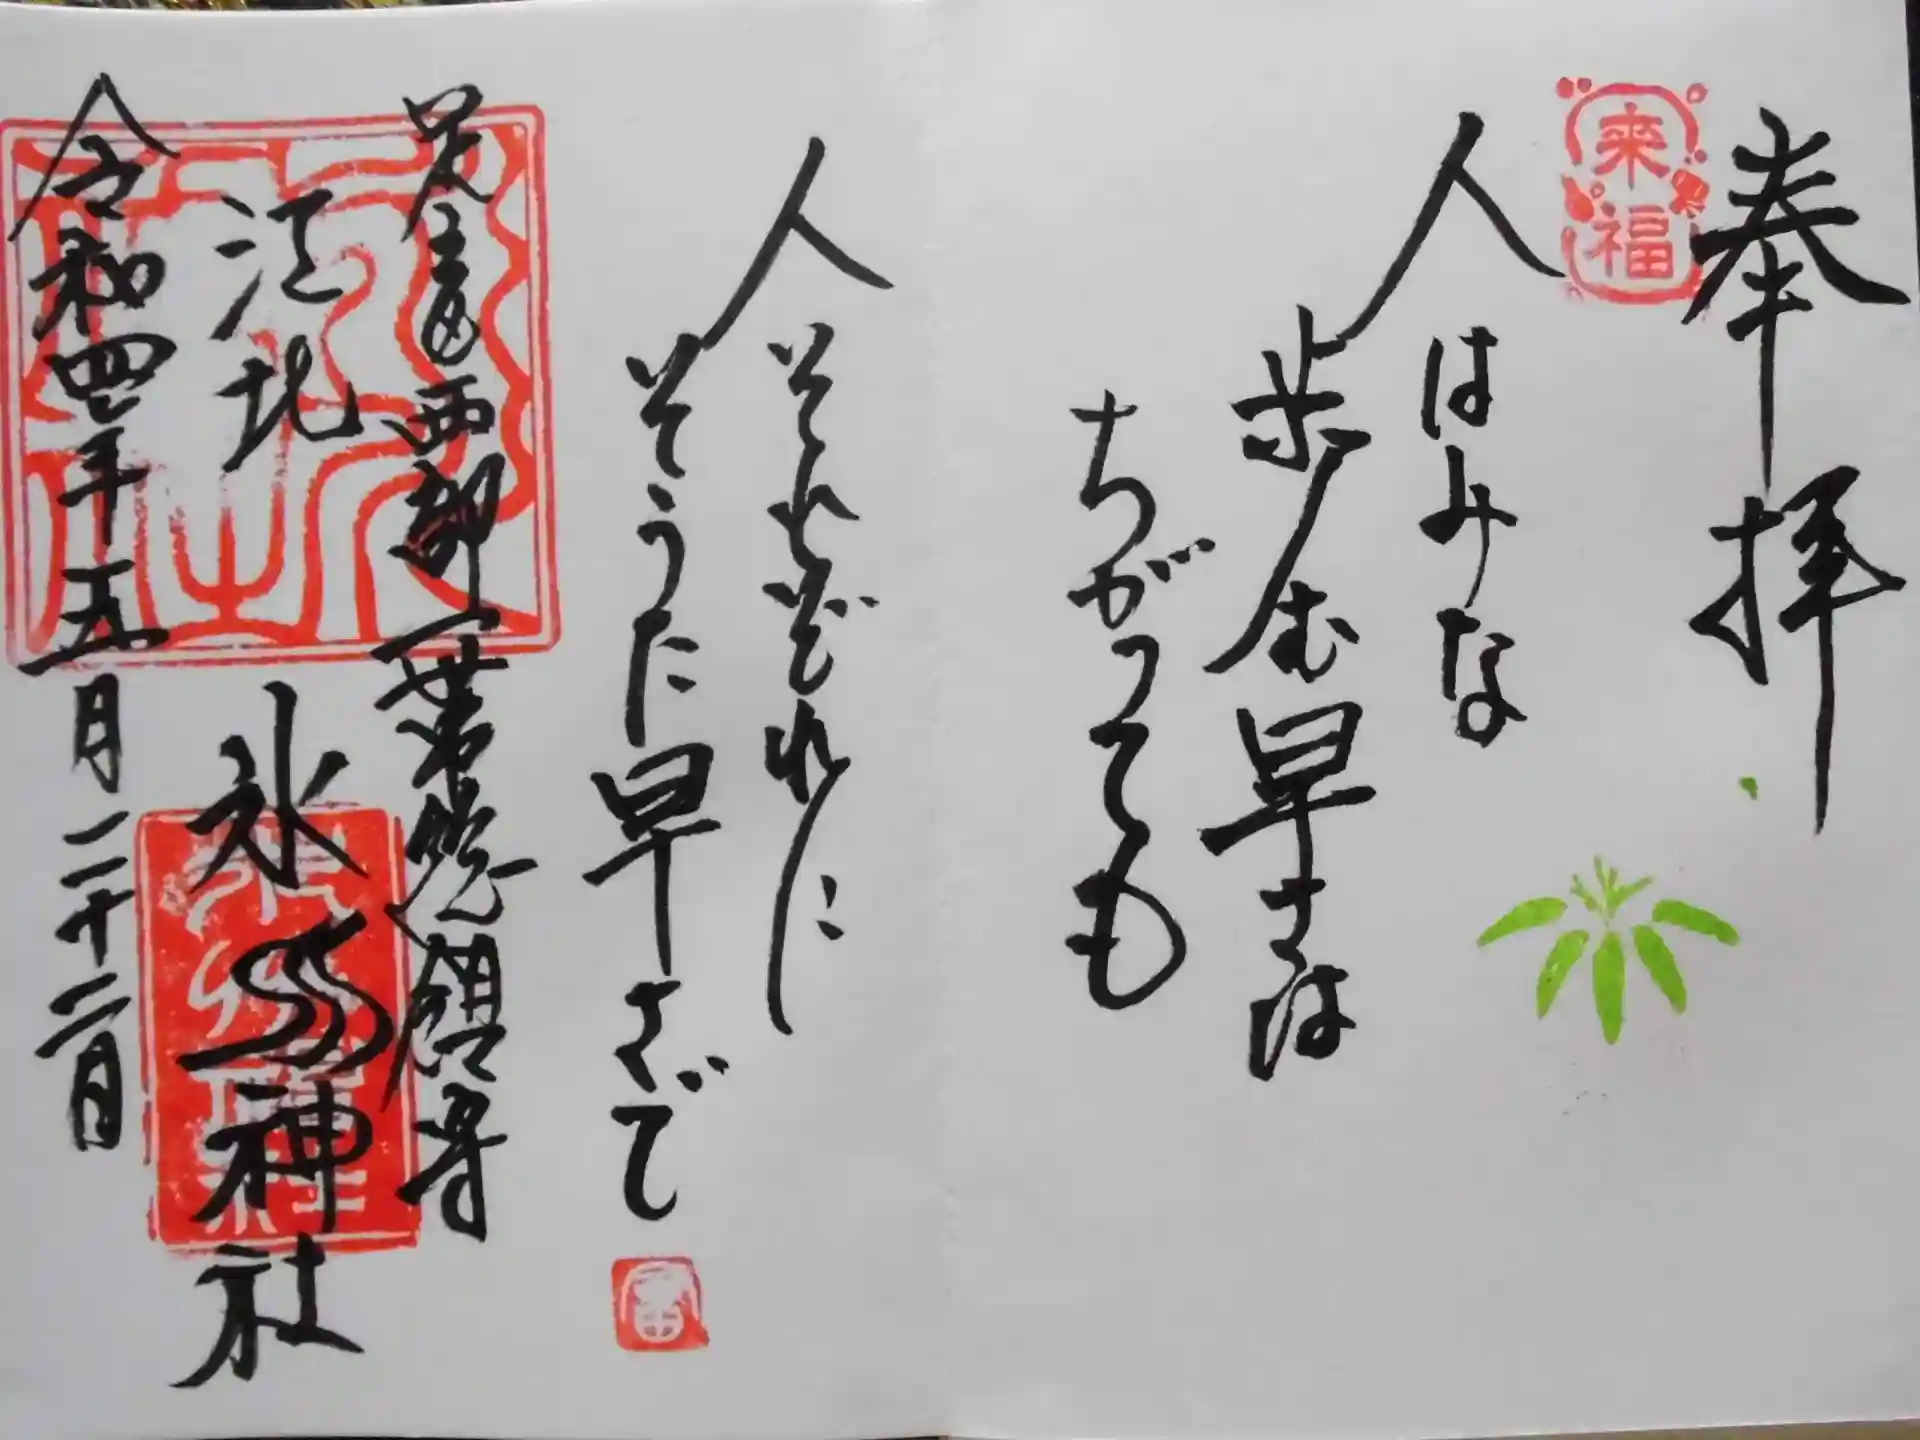 奉拝
来福
人はみな
歩む早さは
ちがっても
人それぞれに
そうた早さで
足立西部一帯総鎮守
江北
氷川神社
令和四年五月二十二日